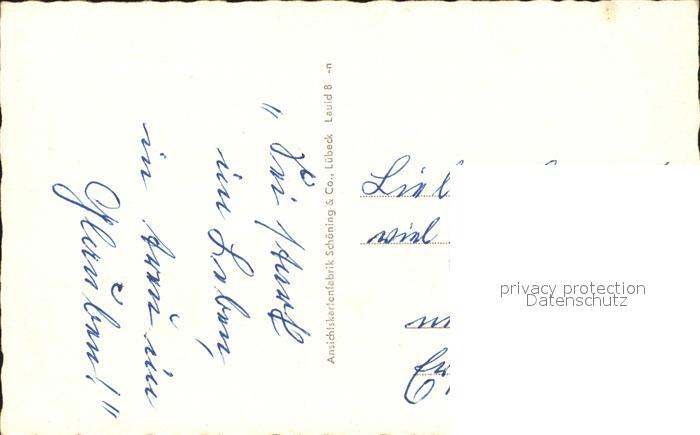 „Sei stark
im Leben,
in treu im
Glauben!“
Ansichtskartenfabrik Schöning & Co., Lübeck Lauid 8 -n
viel
privacy protection
Datenschutz